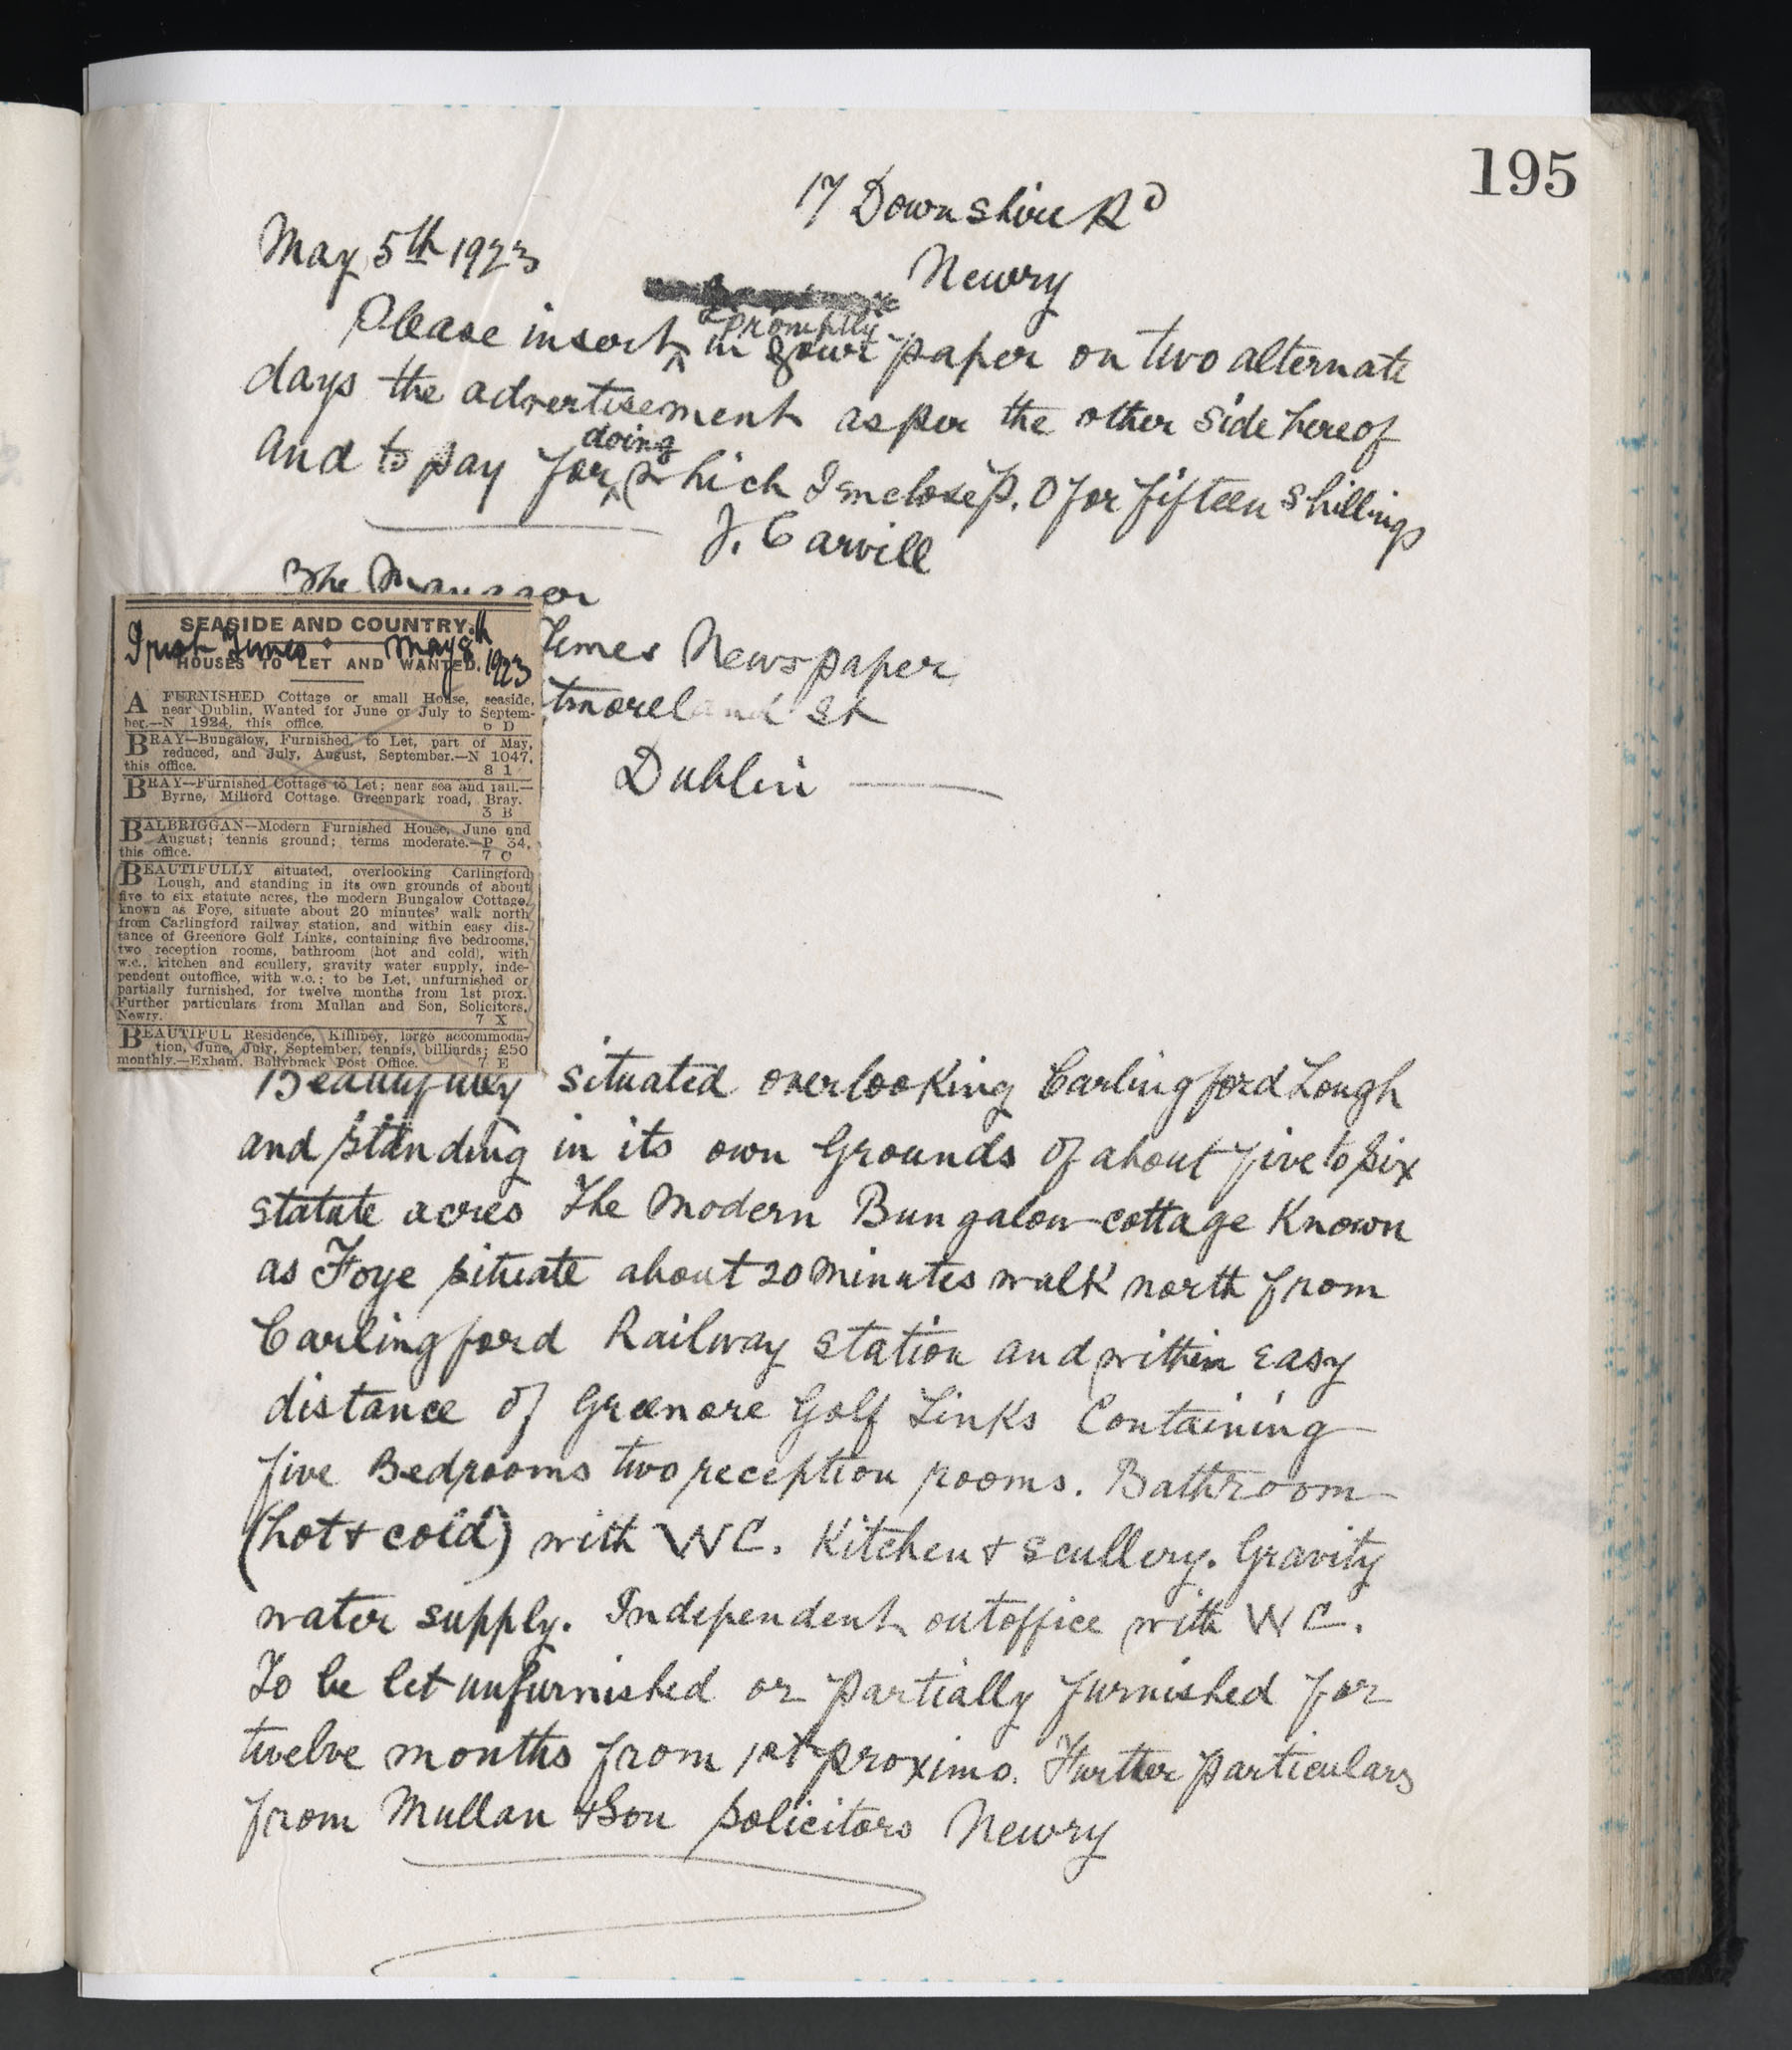 195
17 Downshire Rd
May 5th 1923
Newry
Please insert promptly in your paper on two alternate
days the advertisement as per the other side hereof
and to pay for doing which I enclose P.O for fifteen shillings
J. Carvill
The Manager
Times Newspaper
tmoreland St
Dublin
SEASIDE AND COUNTRY.
Irish Times May 8th 1923
HOUSES TO LET AND WANTED.
A FURNISHED Cottage or small House, seaside,
near Dublin, Wanted for June or July to Septem-
ber.—N 1924, this office. 6 D
BRAY—Bungalow, Furnished, to Let, part of May,
reduced, and July, August, September.—N 1047,
this office. 8 1
BRAY—Furnished Cottage to Let; near sea and rail.—
Byrne, Milford Cottage, Greenpark road, Bray.
3 B
BALBRIGGAN—Modern Furnished House, June and
August; tennis ground; terms moderate.—P 34,
this office. 7 C
BEAUTIFULLY situated, overlooking Carlingford
Lough, and standing in its own grounds of about
five to six statute acres, the modern Bungalow Cottage,
known as Foye, situate about 20 minutes' walk north
from Carlingford railway station, and within easy dis-
tance of Greenore Golf Links, containing five bedrooms,
two reception rooms, bathroom (hot and cold), with
w.c., kitchen and scullery, gravity water supply, inde-
pendent outoffice, with w.c.; to be Let, unfurnished or
partially furnished, for twelve months from 1st prox.
Further particulars from Mullan and Son, Solicitors,
Newry. 7 X
BEAUTIFUL Residence, Killiney, large accommoda-
tion, June, July, September, tennis, billiards; £50
monthly.—Exham, Ballybrack Post Office. 7 E
Beautifully situated overlooking Carlingford Lough
and standing in its own Grounds of about five to six
statute acres The Modern Bungalow cottage Known
as Foye situate about 20 minutes walk north from
Carlingford Railway Station and within Easy
distance of Greenore Golf Links Containing
five Bedrooms two reception rooms. Bathroom
(hot & cold) with WC. Kitchen & scullery. Gravity
water supply. Independent outoffice with WC.
To be let unfurnished or partially furnished for
twelve months from 1st proximo. Further particulars
from Mullan & Son Solicitors Newry